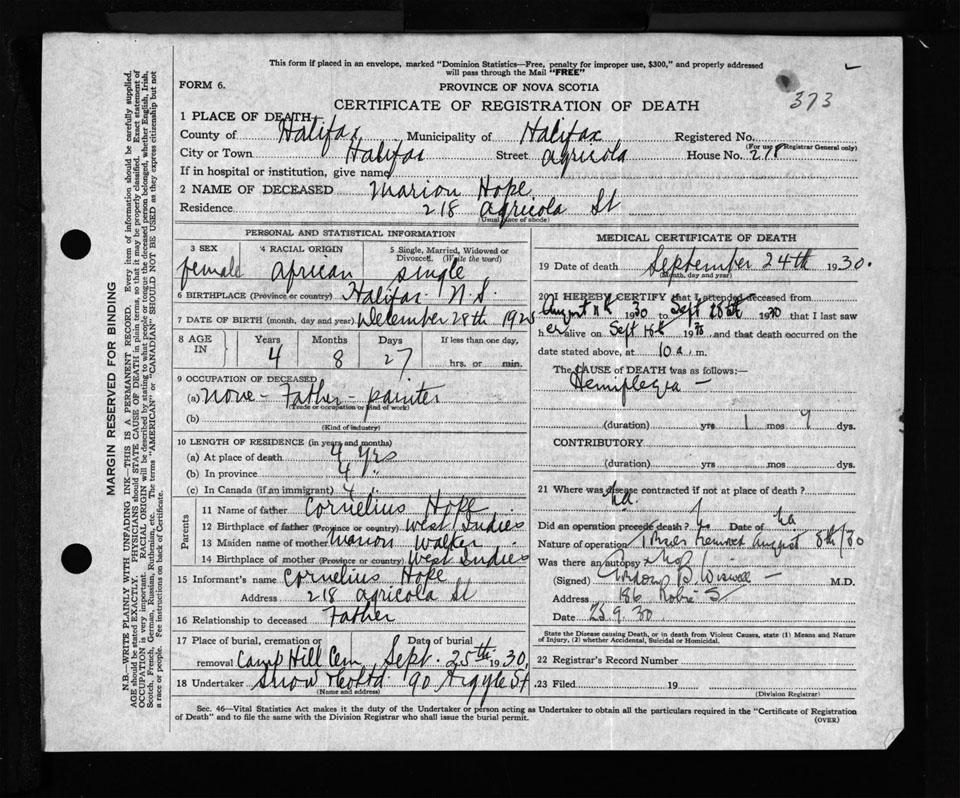 This form if placed in an envelope, marked "Dominion Statistics—Free, penalty for improper use, $300," and properly addressed
will pass through the Mail "FREE"
FORM 6.
PROVINCE OF NOVA SCOTIA
373
CERTIFICATE OF REGISTRATION OF DEATH
1 PLACE OF DEATH
County of Halifax Municipality of Halifax Registered No.
(For use Registrar General only)
City or Town Halifax Street Agricola House No. 218
If in hospital or institution, give name
2 NAME OF DECEASED Marion Hope
Residence 218 Agricola St
(Usual place of abode)
PERSONAL AND STATISTICAL INFORMATION
3 SEX 4 RACIAL ORIGIN 5 Single, Married, Widowed or
Divorced. (Write the word)
female African single
6 BIRTHPLACE (Province or country) Halifax N.S.
7 DATE OF BIRTH (month, day and year) December 28th 1925
8 AGE IN Years Months Days If less than one day,
4 8 27 hrs. or min.
9 OCCUPATION OF DECEASED
(a) none - Father - painter
(Trade or occupation or kind of work)
(b)
(Kind of industry)
10 LENGTH OF RESIDENCE (in years and months)
(a) At place of death 4 yrs
(b) In province 4 "
(c) In Canada (if an immigrant) 4
Parents
11 Name of father Cornelius Hope
12 Birthplace of father (Province or country) West Indies
13 Maiden name of mother Marion Walker
14 Birthplace of mother (Province or country) West Indies
15 Informant's name Cornelius Hope
Address 218 Agricola St
16 Relationship to deceased Father
17 Place of burial, cremation or Date of burial
removal Camp Hill Cem Sept. 25th 1930
18 Undertaker Snow & Co Ltd 90 Argyle St
(Name and address)
MEDICAL CERTIFICATE OF DEATH
19 Date of death September 24th 1930.
(Month, day and year)
20 I HEREBY CERTIFY that I attended deceased from
August 1930 to Sept 1930 that I last saw
her alive on Sept 1930 and that death occurred on the
date stated above, at 10 a. m.
The CAUSE of DEATH was as follows:—
Hemiplegia —
(duration) yrs 1 mos 9 dys.
CONTRIBUTORY
(duration) yrs mos dys.
21 Where was disease contracted if not at place of death?
na.
Did an operation precede death? Date of na
Nature of operation removed August 8th/30
Was there an autopsy
(Signed) B. Wiswell — M.D.
Address 186 Robie St
Date 25.9.30
State the Disease causing Death, or in death from Violent Causes, state (1) Means and Nature
of Injury, (2) whether Accidental, Suicidal or Homicidal.
22 Registrar's Record Number
23 Filed 19
(Division Registrar)
Sec. 46—Vital Statistics Act makes it the duty of the Undertaker or person acting as Undertaker to obtain all the particulars required in the "Certificate of Registration
of Death" and to file the same with the Division Registrar who shall issue the burial permit.
(OVER)
MARGIN RESERVED FOR BINDING
N.B.—WRITE PLAINLY WITH UNFADING INK—THIS IS A PERMANENT RECORD. Every item of information should be carefully supplied.
AGE should be stated EXACTLY. PHYSICIANS should STATE CAUSE OF DEATH in plain terms, so that it may be properly classified. Exact statement of
OCCUPATION is very important. RACIAL ORIGIN will be described by stating to what people or tongue the deceased person belonged, whether English, Irish,
Scotch, French, German, Russian, Ruthenian, etc. The terms "AMERICAN" or "CANADIAN" SHOULD NOT BE USED as they express citizenship but not
a race or people. Fee instructions on back of Certificate.